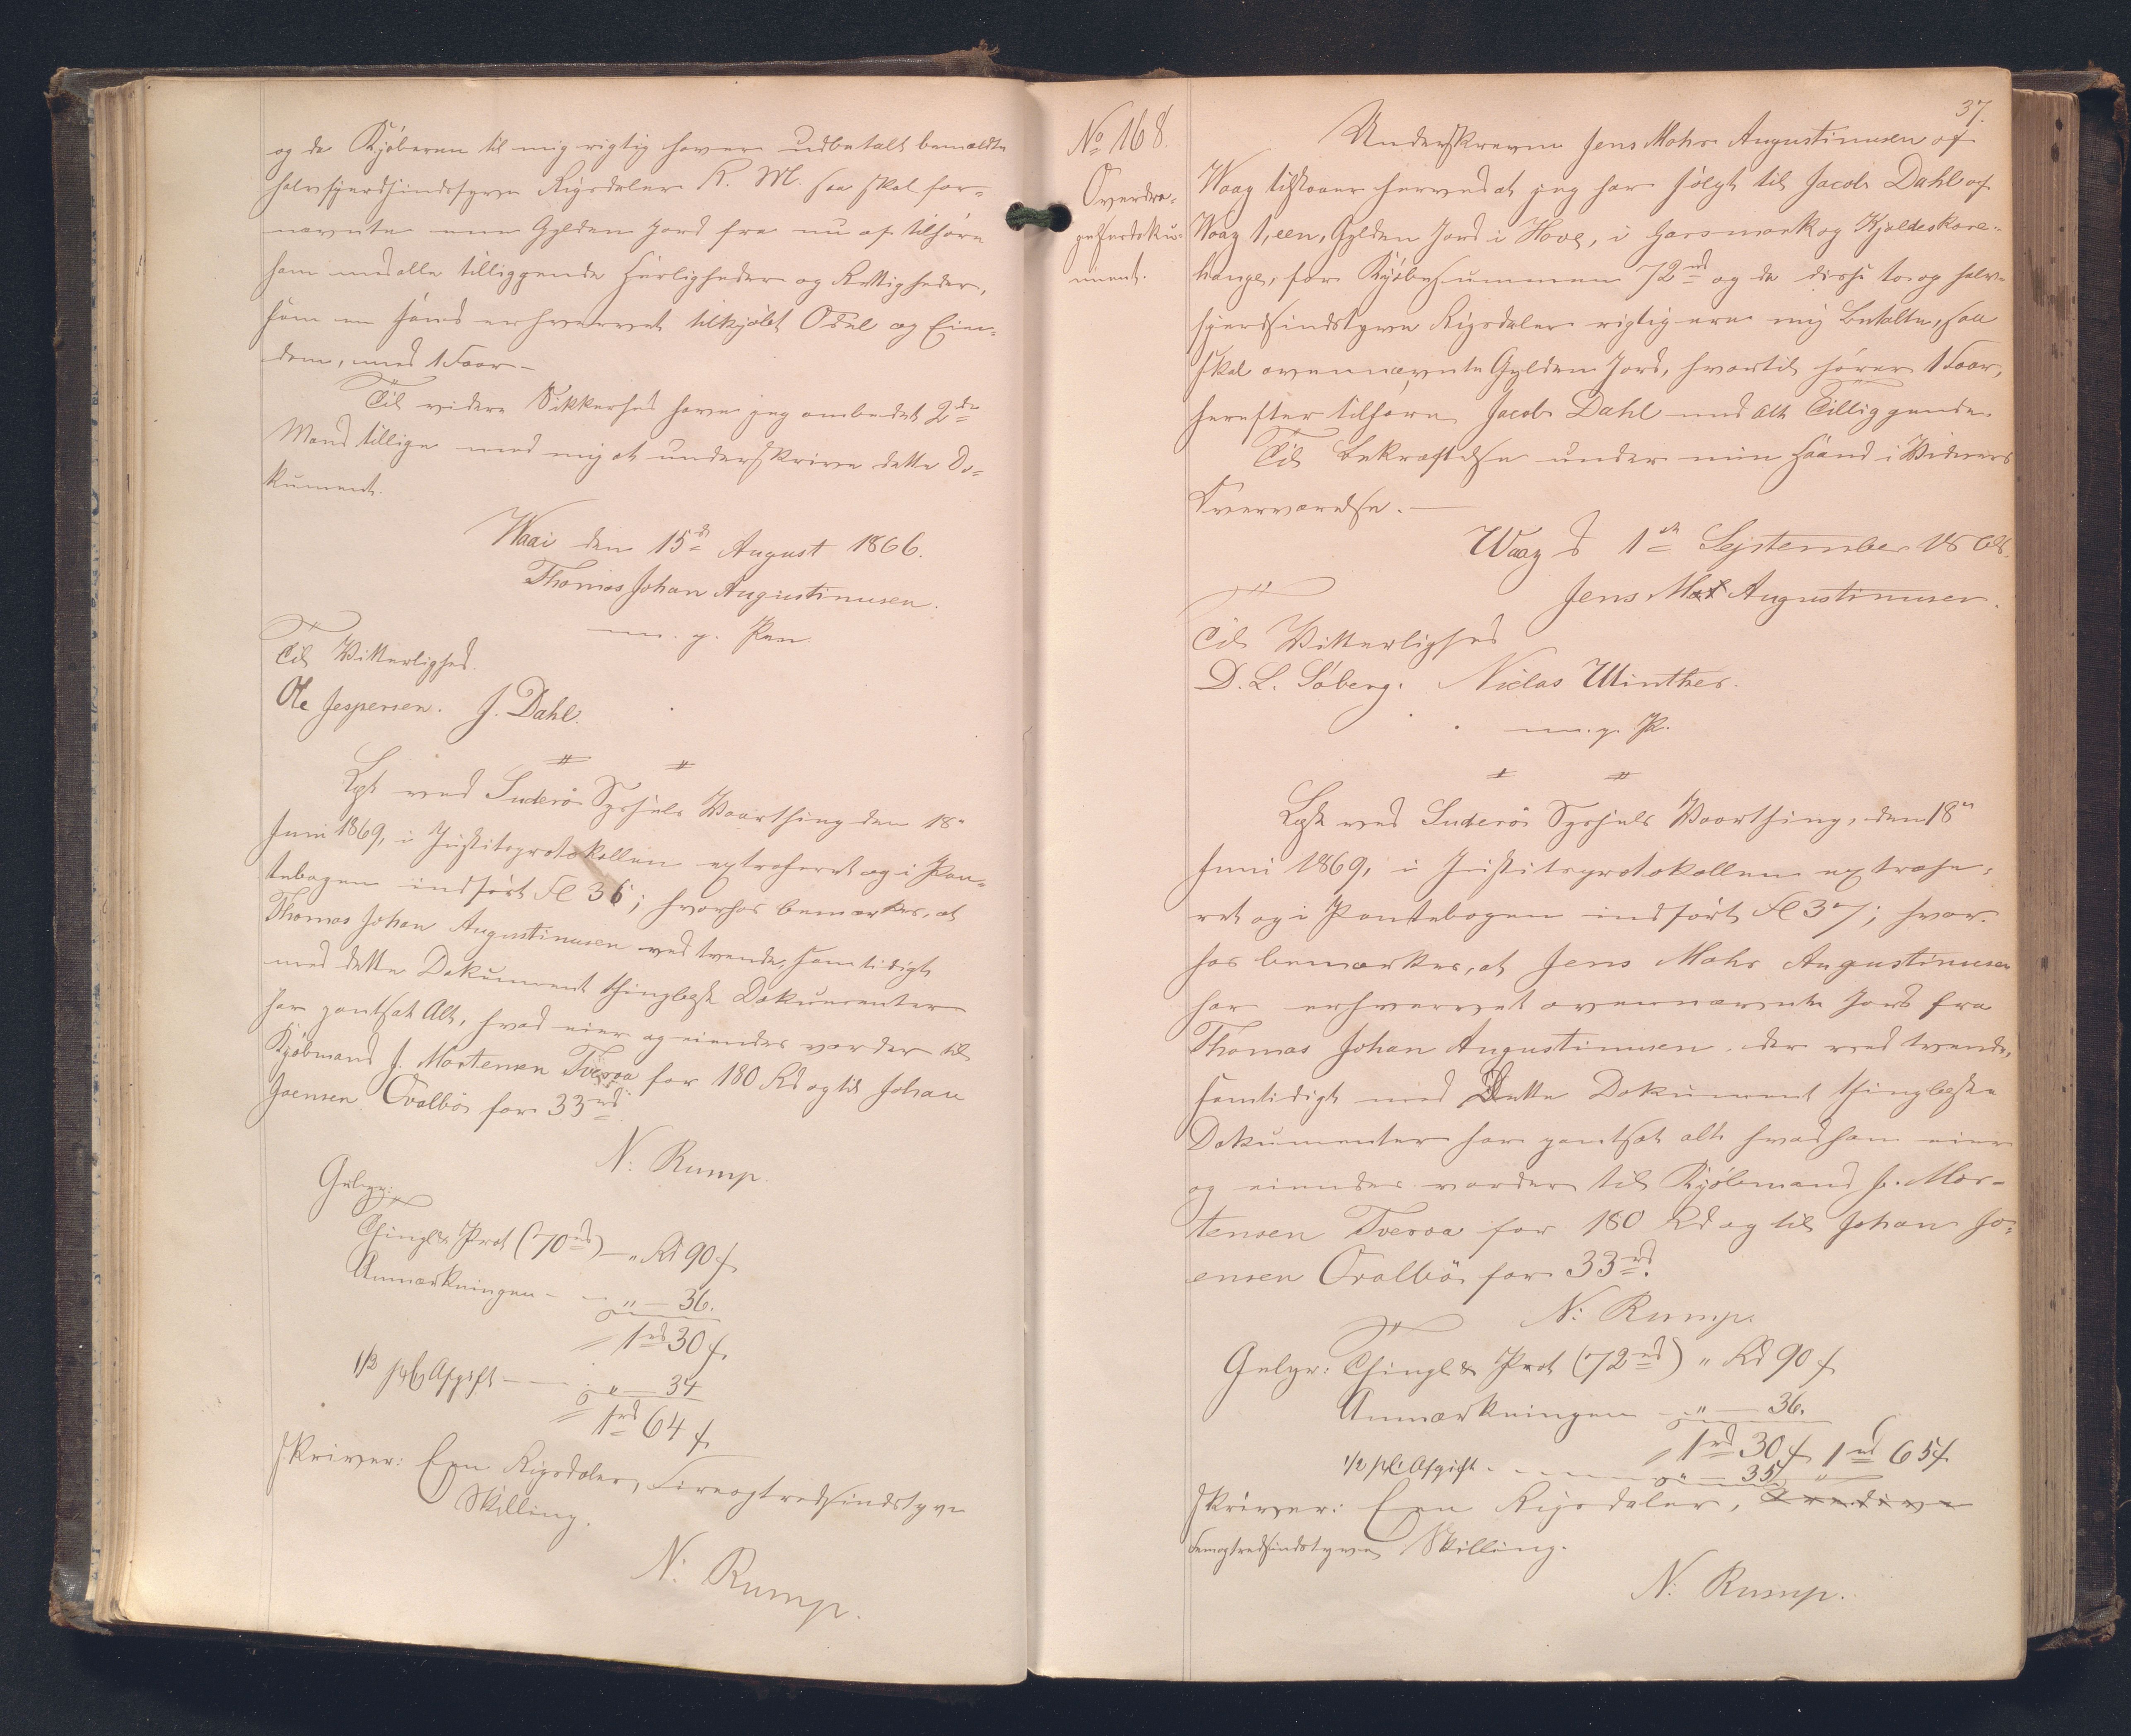 og da Kjöberen til mig rigtig haver udbetalt bemældte
halvfjerdsindstyve Rigsdaler R. M. saa skal for-
nævnte een Gylden Jord fra nu af tilhøre
ham med alle tilliggende Herligheder og Rettigheder,
som en hands erhvervet tilkjøbt Odel og Eien-
dom, med 1 Faar-
Til videre Sikkerhed haver jeg ombedet 2de
Mænd tillige med mig at underskrive dette Do-
kument.
Waai den 15de August 1866.
Thomas Johan Augustinusen.
m. g. Pen.
Til Vitterlighed.
Ole Jespersen. J. Dahl.
Læst ved Suderö Syssels Vaarthing den 18n
Juni 1869, i Justitsprotokollen extraheret og i Pan-
tebogen indført Fl 36; hvorhos bemærkes, at
Thomas Johan Augustinusen ved tvende, samtidigt
med dette Dokument thinglæste Dokumenter
har pantsat Alt, hvad eier og eiendes vorder til
Kjøbmand J. Mortensen Tveraa for 180 Rd og til Johan
Joensen Qvalbö for 33rd.
N: Rump.
Gebyr:
Thingl & Prot (70rd) - " Rd 90 f
Anmærkningen - - " - 36.
1rd 30 f.
1/2 pCt Afgift - - " - 34
1rd 64 f
skriver: Een Rigsdaler, Fireogtredsindstyve
Skilling.
N: Rump.
37.
No 168.
Overdra-
gelsesdoku-
ment.
Underskrevne Jens Mohr Augustinusen af
Waag tilstaaer herved at jeg har solgt til Jacob Dahl af
Waag 1, een, Gylden Jord i Hove, i Garsmork og Kjeldeskare-
hauge, for Kjøbesummen 72rd og da disse to og halv-
fjerdsindstyve Rigsdaler rigtig ere mig betalte, saa
skal ovennævnte Gylden Jord, hvortil hører 1 Faar,
herefter tilhøre Jacob Dahl med alt Tilliggende.
Til Bekræftelse under min Haand i Vidners
Overværelse. -
Waag d 1ste September 1868.
Jens Mohr Augustinusen.
Til Vitterlighed
D. L. Söberg. Niclas Winther.
m. g. P.
Læst ved Suderö Syssels Vaarthing, den 18n
Juni 1869, i Justitsprotokollen extrahe-
ret og i Pantebogen indført Fl 37; hvor-
hos bemærkes, at Jens Mohr Augustinusen
har erhvervet ovennævnte Jord fra
Thomas Johan Augustinusen, der ved tvende,
samtidigt med Dette Dokument thinglæste
Dokumenter har pantsat alt hvad han eier
og eiendes vorder til Kjøbmand J. Mor-
tensen Tveraa for 180 Rd og til Johan Jo-
ensen Qvalbö for 33rd.
N: Rump.
Gebyr: Thingl & Prot (72rd) " Rd 90 f
Anmærkningen - " - 36.
1rd 30 f 1rd 65 f
1/2 pCt Afgift - - - " - 35
skriver: Een Rigsdaler,
Femogtredsindstyve Skilling.
N: Rump.